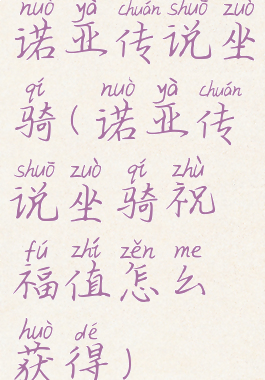 nuò yà chuán shuō zuò
诺亚传说坐
qí nuò yà chuán
骑(诺亚传
shuō zuò qí zhù
说坐骑祝
fú zhí zěn me
福值怎么
huò dé
获得)